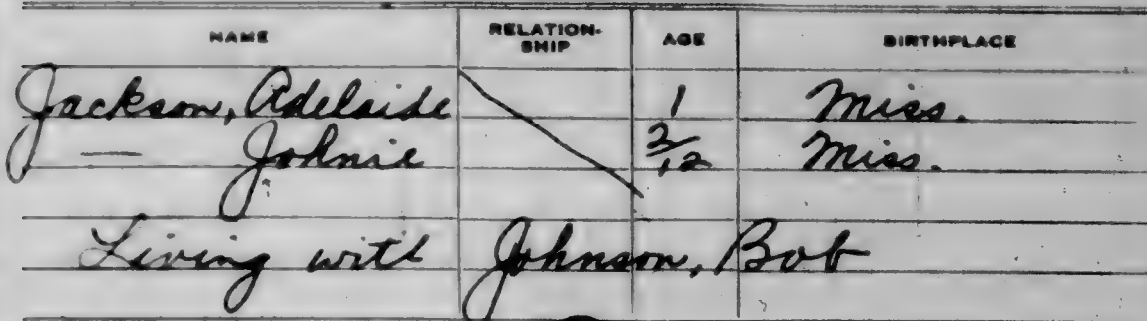 NAME RELATION-SHIP AGE BIRTHPLACE
Jackson, Adelaide 1 Miss.
— Johnie 2/12 Miss.
Living with Johnson, Bob